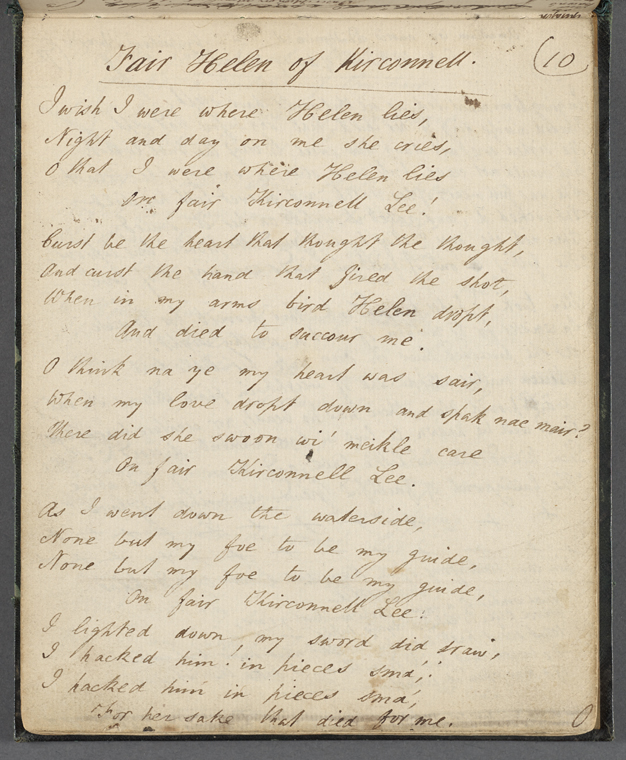 Fair Helen of Kirconnell.
(10
I wish I were where Helen lies,
Night and day on me she cries,
O that I were where Helen lies
On fair Kirconnell Lee!
Curst be the heart that thought the thought,
And curst the hand that fired the shot,
When in my arms bird Helen dropt,
And died to succour me.
O think na ye my heart was sair,
When my love dropt down and spak nae mair?
There did she swoon wi' meikle care
On fair Kirconnell Lee.
As I went down the waterside,
None but my foe to be my guide,
None but my foe to be my guide,
On fair Kirconnell Lee.
I lighted down, my sword did draw,
I hacked him! in pieces sma',
I hacked him in pieces sma',
For her sake that died for me.